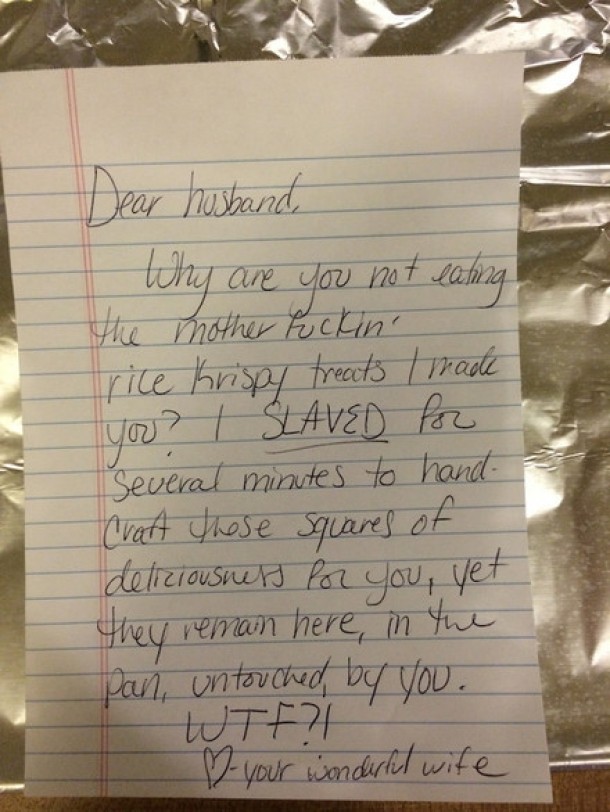 Dear husband,
Why are you not eating
the mother fuckin'
rice krispy treats I made
you? I SLAVED for
several minutes to hand-
craft those squares of
deliciousness for you, yet
they remain here, in the
pan, untouched, by you.
WTF?!
♡-your wonderful wife